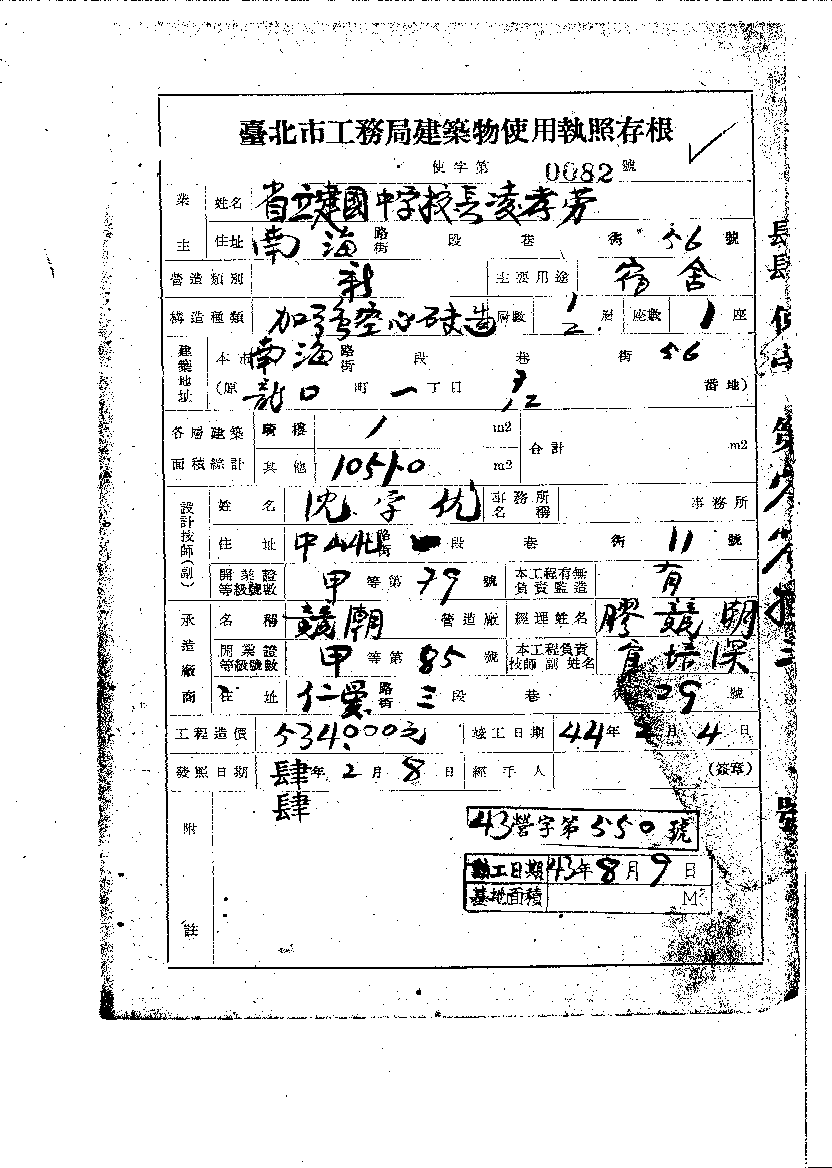 臺北市工務局建築物使用執照存根
使字第 0082 號
業主 姓名 省立建國中學校長凌孝芬
住址 南海 路街 段 巷 衖 56 號
營造類別 新 主要用途 宿舍
構造種類 加強空心磚造 層數 1 2 層 座數 1 座
建築地址 本市 南海 路街 段 巷 街 56
(原 龍口 町 一 丁目 12 番地)
各層建築面積綜計 騎樓 1 m2 合計 m2
其他 1051.0 m2
設計技師(副) 姓名 沈學優 事務所名稱 事務所
住址 中山北 路街 一 段 巷 衖 11 號
開業證等級號數 甲 等第 79 號 本工程有無負責監造 有
承造廠商 名稱 競潮 營造廠 經理姓名 膠競朝
開業證等級號數 甲 等第 85 號 本工程負責技師副姓名 培深
住址 仁愛 路街 三 段 巷 街 29 號
工程造價 534,000元 竣工日期 44年 2月 4日
發照日期 肆肆年 2月 8日 經手人 (簽章)
附註
43營字第550號
開工日期 43年 8月 9日
基地面積 M²